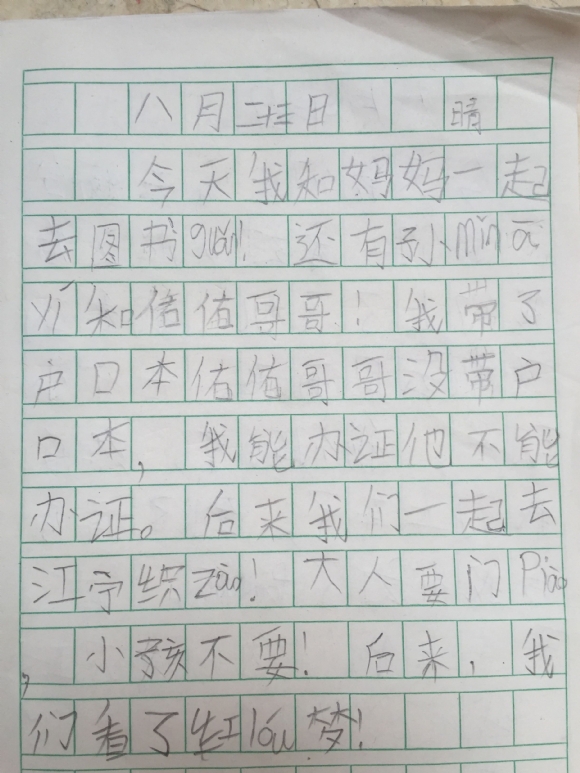 八月二十三日 晴
今天我知妈妈一起
去图书guǎn! 还有孙mín ā
yí知佑佑哥哥!我带了
户口本佑佑哥哥没带户
口本,我能办证他不能
办证。后来我们一起去
江宁织zào!大人要门Piào
,小孩不要!后来,我
们看了红lóu梦!